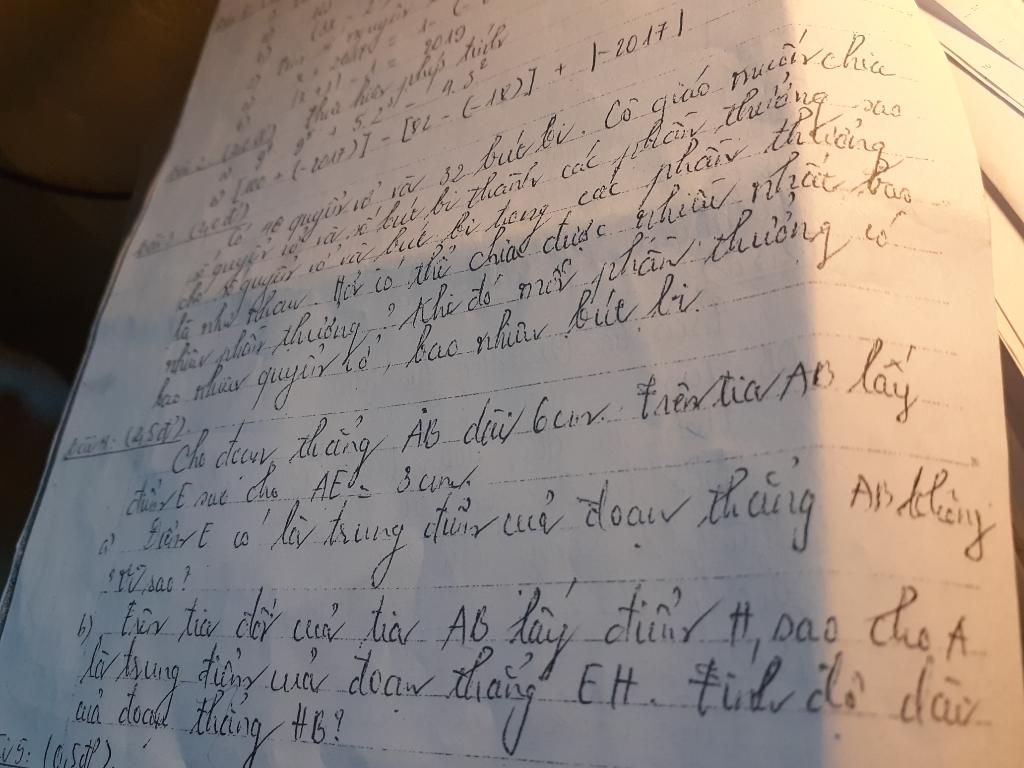 2019
thực hiện phép tính
+ 5.2² - 4.3²
[100 + (-2017)] - [82 - (-18)] + |-2017|
(2,0đ)
Có 40 quyển vở và 32 bút bi. Cô giáo muốn chia
số quyển vở và số bút bi thành các phần thưởng sao
cho số quyển vở và bút bi trong các phần thưởng
là như nhau. Hỏi có thể chia được nhiều nhất bao
nhiêu phần thưởng? Khi đó mỗi phần thưởng có
bao nhiêu quyển vở, bao nhiêu bút bi.
Bài 4: (2,5đ)
Cho đoạn thẳng AB dài 6cm. Trên tia AB lấy
điểm E sao cho AE = 3cm.
a) Điểm E có là trung điểm của đoạn thẳng AB không
? Vì sao?
b) Trên tia đối của tia AB lấy điểm H, sao cho A
là trung điểm của đoạn thẳng EH. Tính độ dài
của đoạn thẳng HB?
Bài 5: (0,5đ)